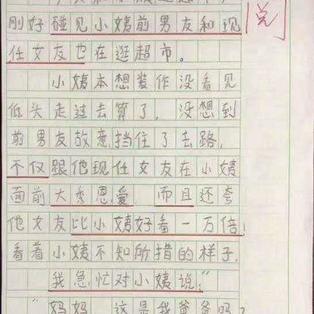 刚好碰见小姨前男友和现
任女友也在逛超市。
小姨本想装作没看见
低头走过去算了，没想到
前男友故意挡住了去路，
不仅跟他现任女友在小姨
面前大秀恩爱 而且还夸
他女友比小姨好看一万倍，
看着小姨不知所措的样子，
我急忙对小姨说：“
“妈妈 这是我爸爸吗？